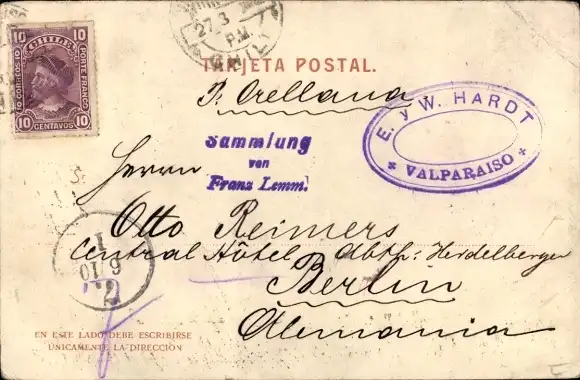 10 CHILE 10
CORREOS
PORTE FRANCO
10 CENTAVOS 10
27.3
P.M.
CHILE
TARJETA POSTAL.
P. Orellana
E. y W. HARDT
VALPARAISO
Sammlung
von
Franz Lemm.
Herrn
Otto Reimers
Central Hôtel Abth: Heidelberger
Berlin
Alemania
1
6 10
EN ESTE LADO DEBE ESCRIBIRSE
ÚNICAMENTE LA DIRECCIÓN